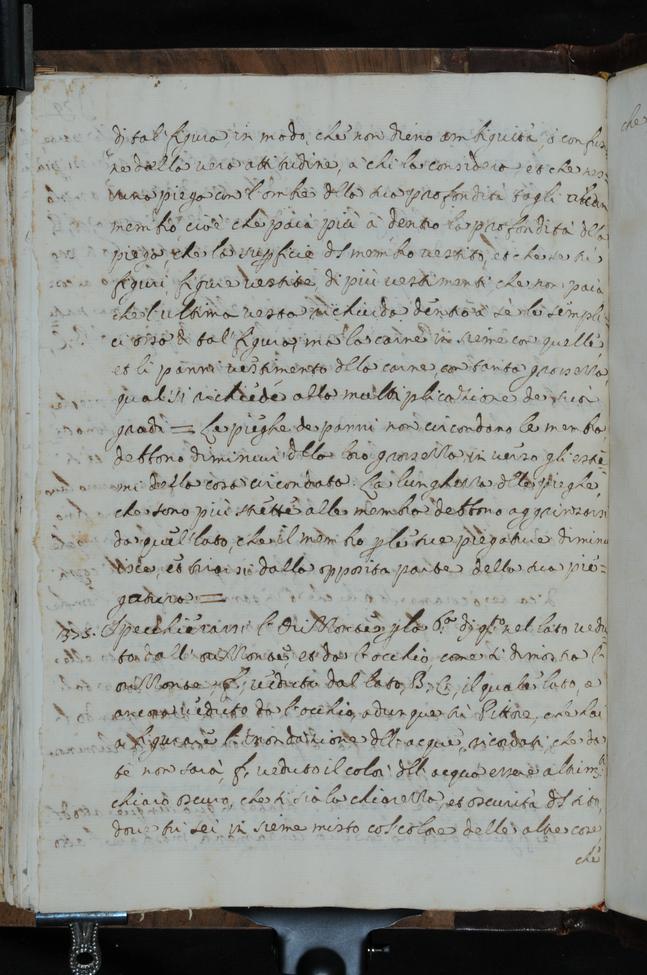 di tal' figura, in modo, che' non dieno ambiguità, ò confusio
ne dalla vera attitudine, a chi la considera, et che nes
suna piega con l'ombre della sua profondità tagli alcun
membro cioè che paia più à dentro la profondità della
piega, che la superficie del membro vestito, et che se tu
figuri figure vestite di più vestimenti che non paia
che l'ultima vesta rinchiuda dentro à sè le sempli-
ci ossa di tal' figura, ma la carne in sieme con quelle
et li panni vestimento della carne, con tanta grossezza,
qual si richiede alla multiplicazione de' suoi
gradi = Le pieghe de panni non circondano le membra
debbono diminuir della loro grossezza, in verso gli estre
mi della cosa circondata. La lunghezza delle pieghe,
che sono più strette alle membra debbono aggrinzarsi
da quel' lato, che il membro per le sue piegature diminu
isce, et tirarsi dalla opposita parte della sua pie=
gatura =
Specchierassi l' Orizzonte, per la 6.a di q.to nel lato vedu
to dall' orizzonte, et da l'occhio, come si dimostra l'
orizzonte, F, veduto dal lato, B, C, il quale lato, e
ancora veduto da l'occhio, adunque tù Pittore, che hai
a figurare l'inondazione dell' acque, ricordati, che da
te non sarà, veduto il color dell' acqua essere altrim.ti
chiaro oscuro, che si sia la chiarezza, et oscurità del sito,
dove tu sei, in sieme misto col colore delle altre cose
chè
che